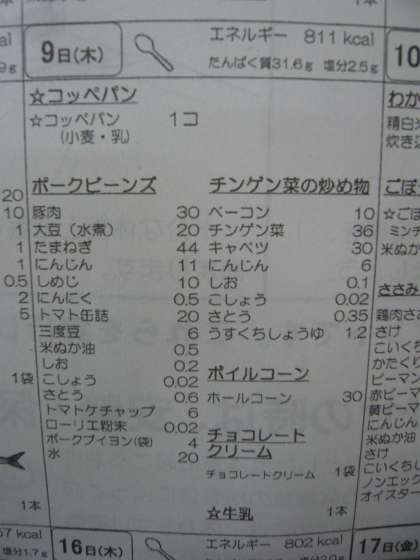 kcal
9日(木)
エネルギー 811 kcal
たんぱく質31.6g 塩分2.5g
10
☆コッペパン
☆コッペパン 1コ
(小麦・乳)
わか
精白米
炊き込
ポークビーンズ
豚肉 30
大豆(水煮) 20
たまねぎ 44
にんじん 11
しめじ 10
にんにく 0.5
トマト缶詰 20
三度豆 6
米ぬか油 0.5
しお 0.2
こしょう 0.02
さとう 0.6
トマトケチャップ 6
ローリエ粉末 0.02
ポークブイヨン(袋) 4
水 20
チンゲン菜の炒め物
ベーコン 10
チンゲン菜 36
キャベツ 30
にんじん 6
しお 0.1
こしょう 0.02
さとう 0.35
うすくちしょうゆ 1.2
ボイルコーン
ホールコーン 30
チョコレート
クリーム
チョコレートクリーム 1袋
☆牛乳 1本
ごぼう
☆ごぼ
ミンチ
米ぬか
ささみ
鶏肉ささ
さけ
こいくち
ピーマン
赤ピーマ
黄ピーマ
にんじん
米ぬか油
さけ
こいくち
ノンエッグ
オイスター
20
10
1
1
1
0.5
2
5
1袋
1本
16日(木)
エネルギー 802 kcal
17日(金)